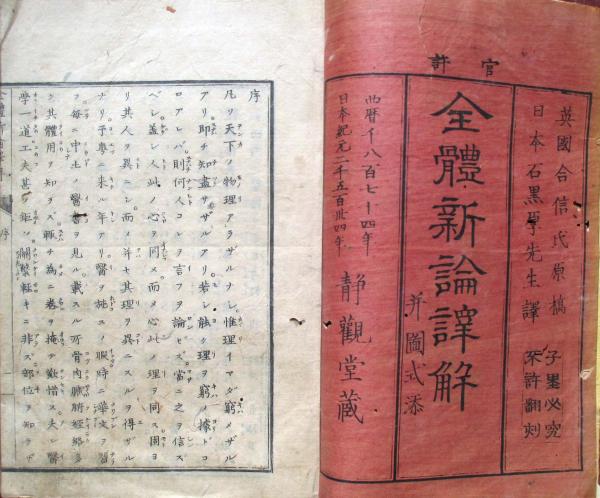 官許
英國合信氏原稿
日本石黒厚先生譯
必究
不許翻刻
全體新論譯解
并圖式添
靜觀堂藏
西暦千八百七十四年
日本紀元二千五百卅四年
序
凡ソ天下ノ物理アラザルナシ惟理イマダ窮メザル
アリ即チ知盡サザルアリ若シ能ク理ヲ窮メ據トコ
ロアレバ則何人コレヲ言フヲ論ゼズ當ニ之ヲ信ズ
ベシ蓋シ人此ノ心ヲ同メ而メ心此ノ理ヲ同ス固ヨ
リ其人ヲ異ニシ而メ并セ其理ヲ異ニスルヲ得ザル
ナリ予粤ニ来ル年アリ醫ヲ施スノ暇時ニ漢文ヲ習
フ毎ニ中土ノ醫書ヲ見ル載スル所骨肉臟腑經絡多
ク其體用ヲ知ラズ輒チ為ニ巻ヲ掩テ歎惜ス夫レ醫
學一道工夫甚タ鉅ソ關繫軽キニ非ズ部位ヲ知ラザ
序